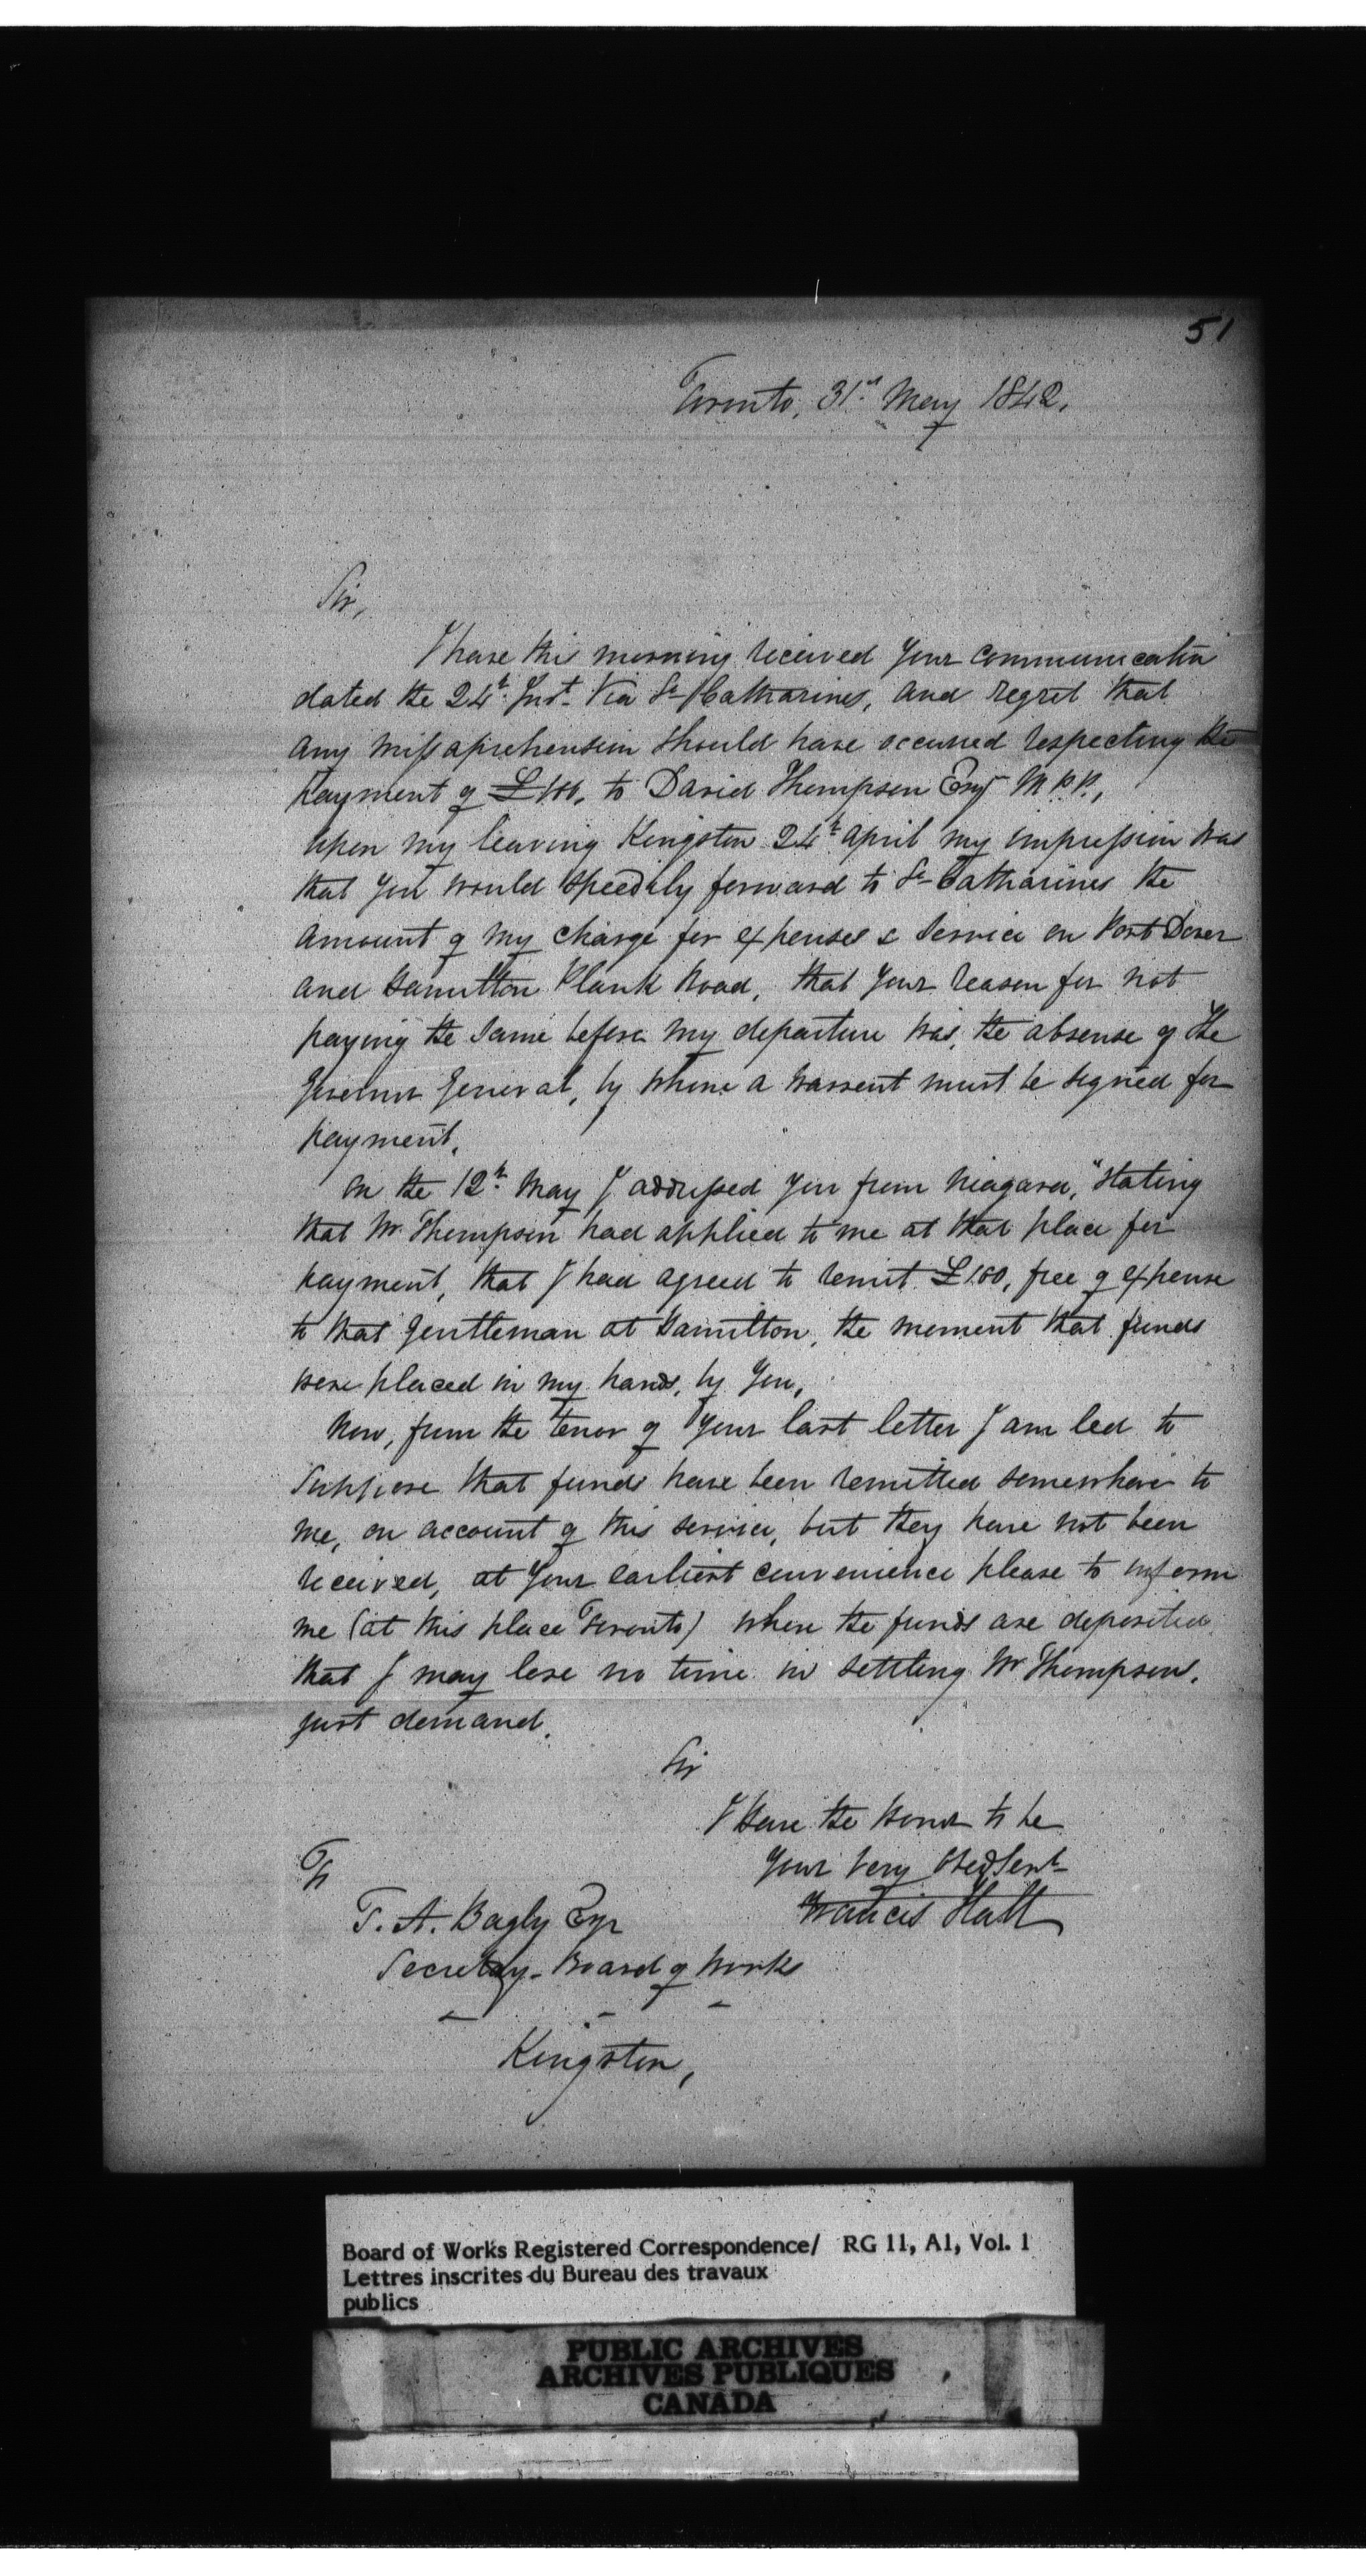 51
Toronto, 31st May 1842.
Sir,
I have this morning received your communication
dated the 24th Inst. Via St Catharines, and regret that
any missaprehension should have occurred respecting the
payment of £100, to David Thompson Esqr M.P.P.,
upon my leaving Kingston 24th April my impression was
that you would speedily forward to St Catharines the
amount of my charge for expenses & service on Port Dover
and Hamilton Plank Road, that your reason for not
paying the same before my departure was, the absense of the
Govenor General, by whom a warrent must be signed for
payment.
On the 12th May I addressed you from Niagara, "stating
that Mr Thompson had applied to me at that place for
payment, that I had agreed to remit £100, free of expense
to that Gentleman at Hamilton, the moment that funds
were placed in my hands, by you,
Now, from the tenor of your last letter I am led to
suppose that funds have been remitted somewhere to
me, on account of this service, but they have not been
received, at your earliest convenience please to inform
me (at this place Toronto) where the funds are deposited
that I may lose no time in settling Mr Thompsons,
just demand.
Sir
I have the honor to be
Your very Obed Sevt
Francis Hall
To
T. A. Begly Esqr
Secretary - Board of Works
Kingston,
Board of Works Registered Correspondence/ RG 11, A1, Vol. 1
Lettres inscrites du Bureau des travaux
publics
PUBLIC ARCHIVES
ARCHIVES PUBLIQUES
CANADA